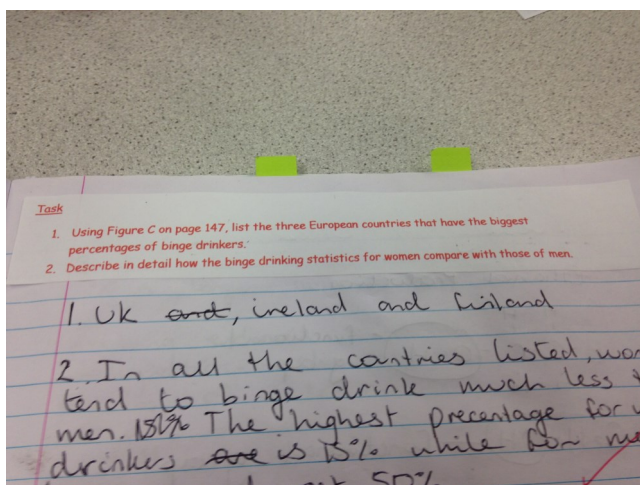 Task
1. Using Figure C on page 147, list the three European countries that have the biggest
percentages of binge drinkers.
2. Describe in detail how the binge drinking statistics for women compare with those of men.
1. Uk and, ireland and finland
2. In all the countries listed, wo
tend to binge drink much less
men. The highest precentage for
drinkers are is 15% while for me
50%